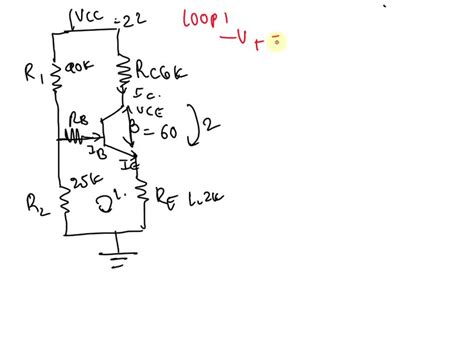 VCC = 22
LOOP 1
-V + I
R1 90K
RC 6K
IC
VCE
RB
β = 60
2
IB
IE
25K
R2
1.
RE 1.2K